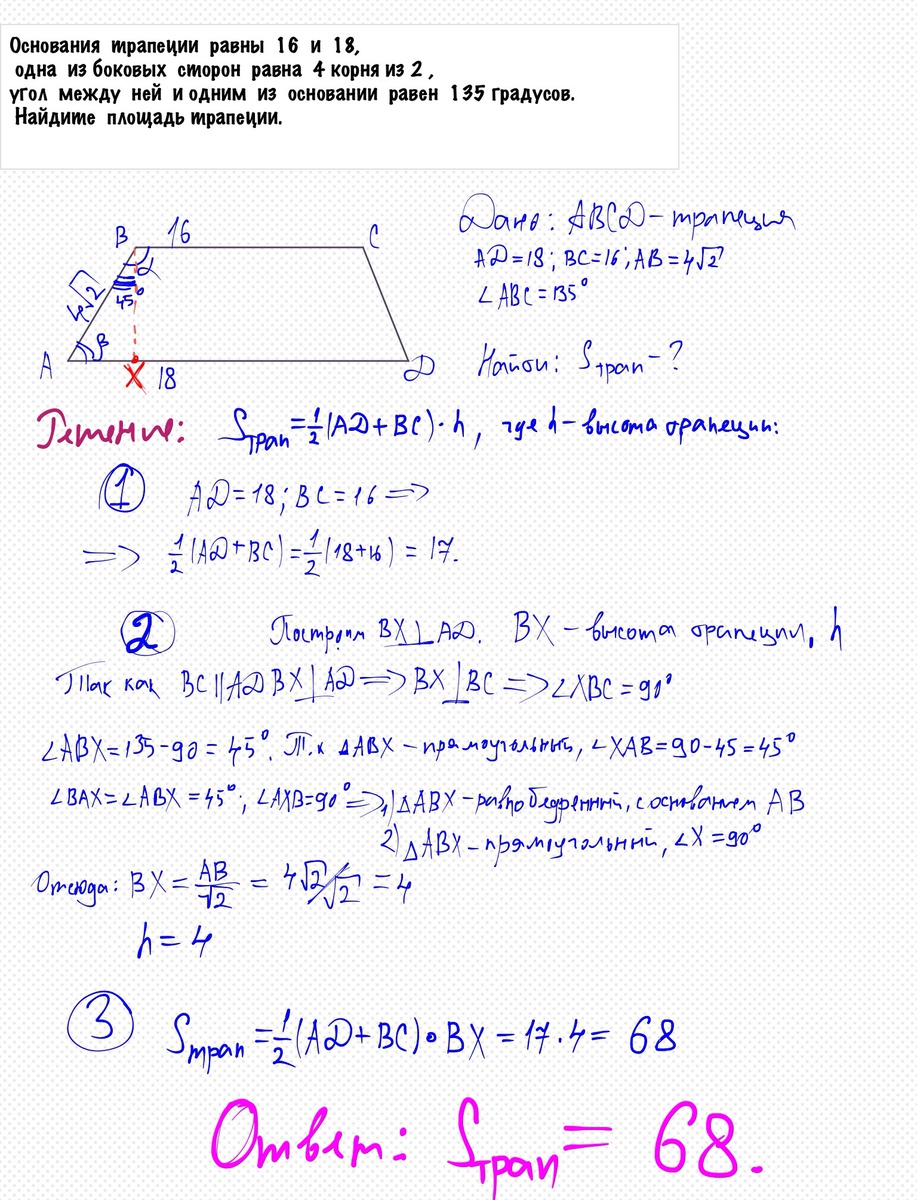 Основания трапеции равны 16 и 18,
одна из боковых сторон равна 4 корня из 2 ,
угол между ней и одним из основании равен 135 градусов.
Найдите площадь трапеции.
B 16 C
4√2
α
45°
β
A X 18 D
Дано: ABCD – трапеция
AD=18; BC=16; AB=4√2
∠ABC=135°
Найти: Sтрап – ?
Решение: Sтрап=1/2(AD+BC)·h, где h – высота трапеции:
1 AD=18; BC=16 =>
=> 1/2(AD+BC)=1/2(18+16)=17.
2 Построим BX⊥AD. BX – высота трапеции, h
Так как BC||AD BX⊥AD => BX⊥BC => ∠XBC=90°
∠ABX=135-90=45°. Т.к △ABX – прямоугольный, ∠XAB=90-45=45°
∠BAX=∠ABX=45°; ∠AXB=90° => 1) △ABX – равнобедренный, с основанием AB
2) △ABX – прямоугольный, ∠X=90°
Отсюда: BX=AB/√2=4√2/√2=4
h=4
3 Sтрап=1/2(AD+BC)·BX=17·4=68
Ответ: Sтрап=68.